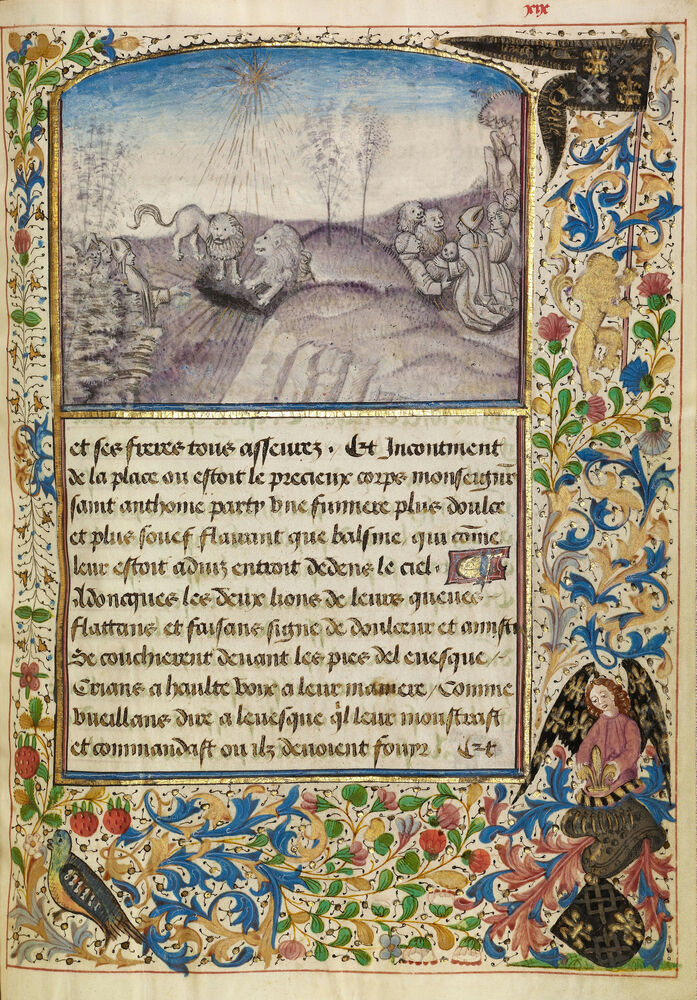 xix
et ses freres tous asseurez . Et Incontinent
de la place ou estoit le precieux corps monseigneur
saint anthoine party vne fumiere plus doulce
et plus souef flairant que balsme, qui cõme
leur estoit aduiz entroit dedens le ciel .
Adoncques les deux lions de leurs queues
flattans et faisans signe de doulceur et amisti
Se couchierent deuant les pies del euesque /
Crians a haulte voix a leur maniere / Comme
vueillans dire a leuesque q̃l leur monstrast
et commandast ou ilz deuoient fouyr . Et